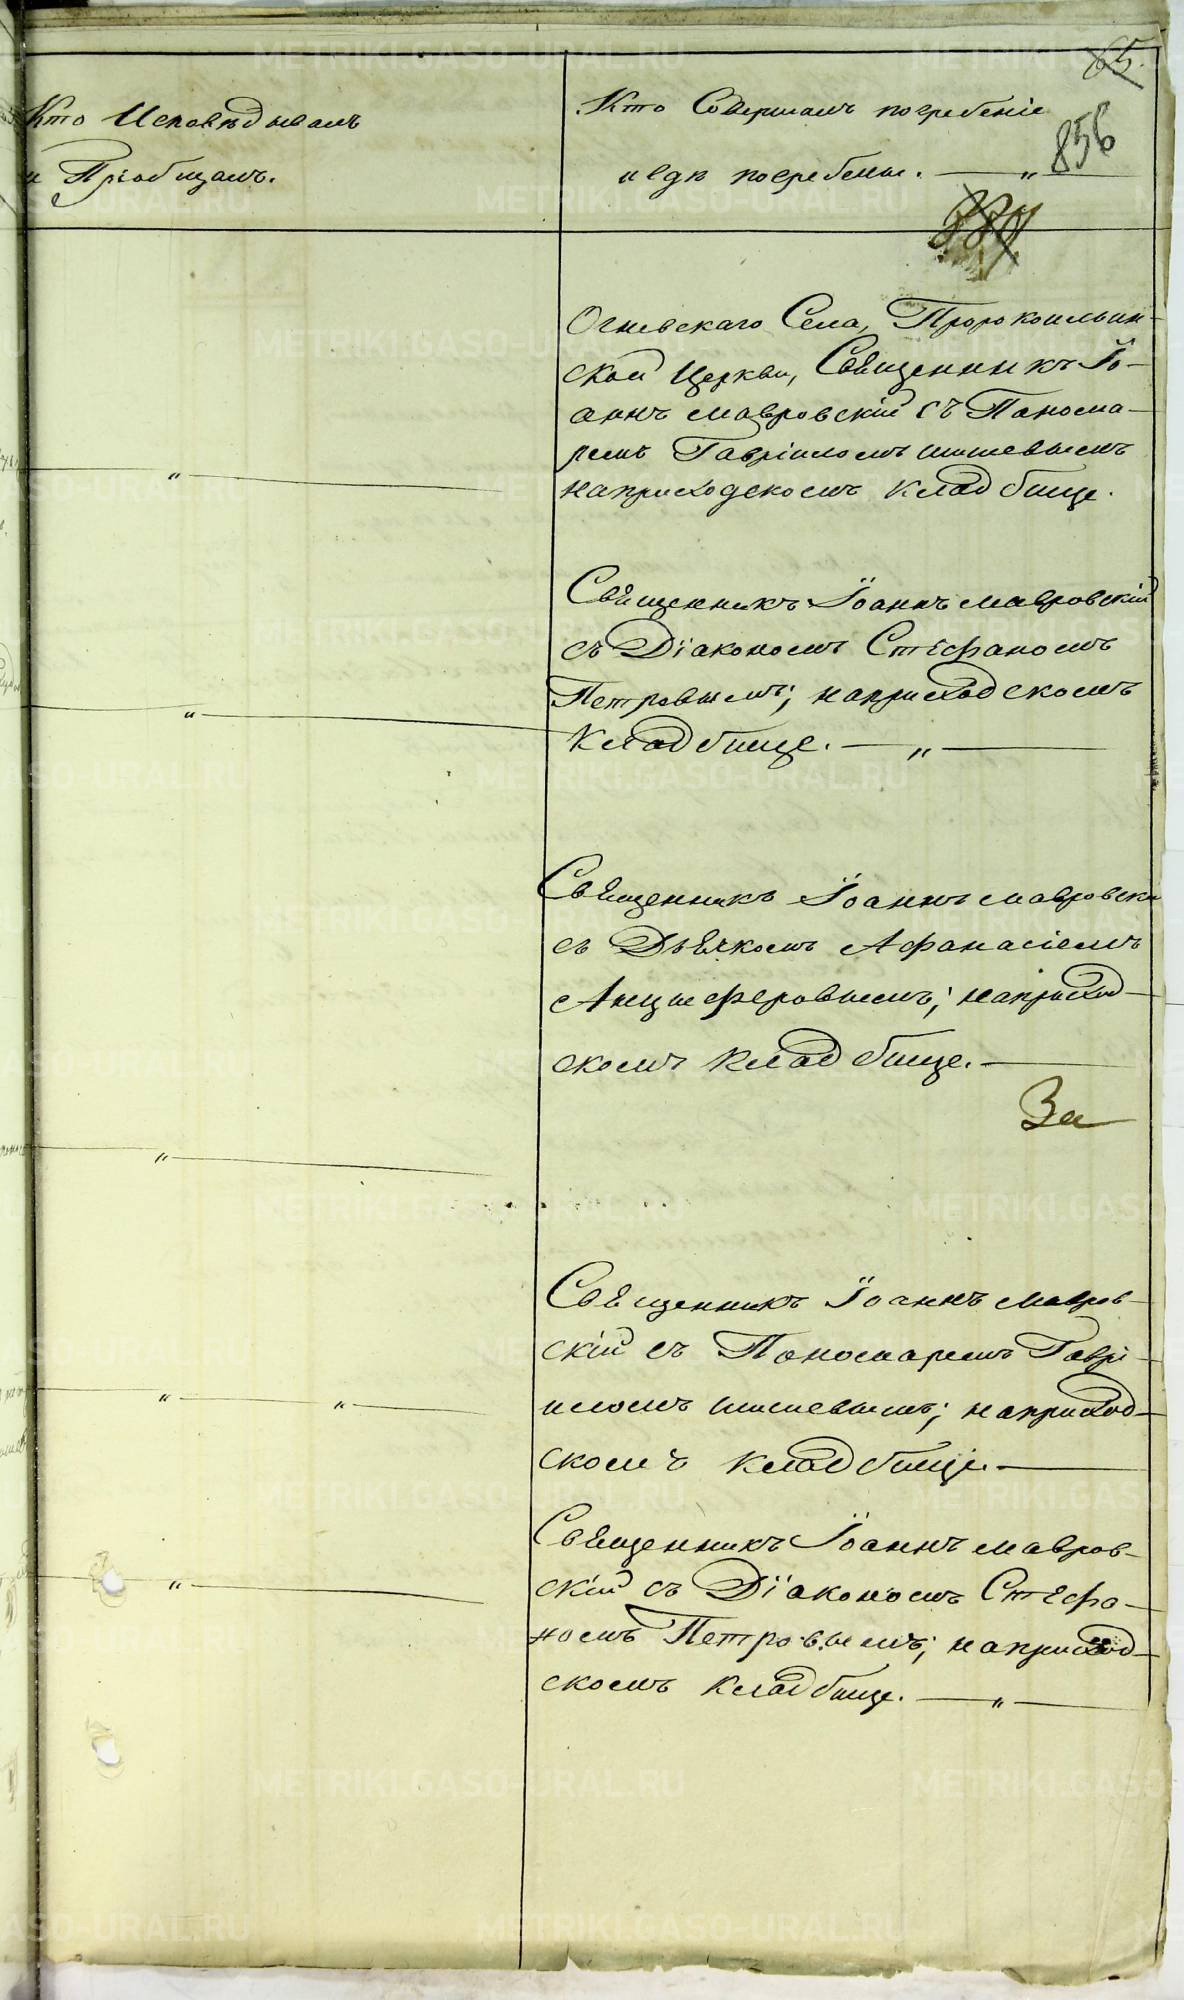 65.
Кто Исповѣдывалъ
и Пріобщалъ.
Кто Совершалъ погребеніе
и гдѣ погребены. — „ —
856
Огневскаго Села, Пророкоильин-
ской Церкви, Священникъ Іо-
аннъ Мавровскій съ Паномa-
ремъ Гавріиломъ Шишевымъ
наприходскомъ кладбище.
„
Священникъ Іоаннъ Мавровскій
съ Діакономъ Стефаномъ
Петровымъ; наприходскомъ
кладбище. — „ —
„
Священникъ Іоаннъ Мавровскі
съ Дьячкомъ Афанасіемъ
Анциферовымъ; наприход-
скомъ кладбище. —
За
„
Священникъ Іоаннъ Мавров-
скій съ Пономаремъ Гаврі-
иломъ Шишевымъ; наприход-
скомъ кладбище. —
„ — „
Священникъ Іоаннъ Мавров-
скій съ Діакономъ Стефа-
номъ Петровымъ; наприход-
скомъ кладбище. — „ —
„
METRIKI.GASO-URAL.RU